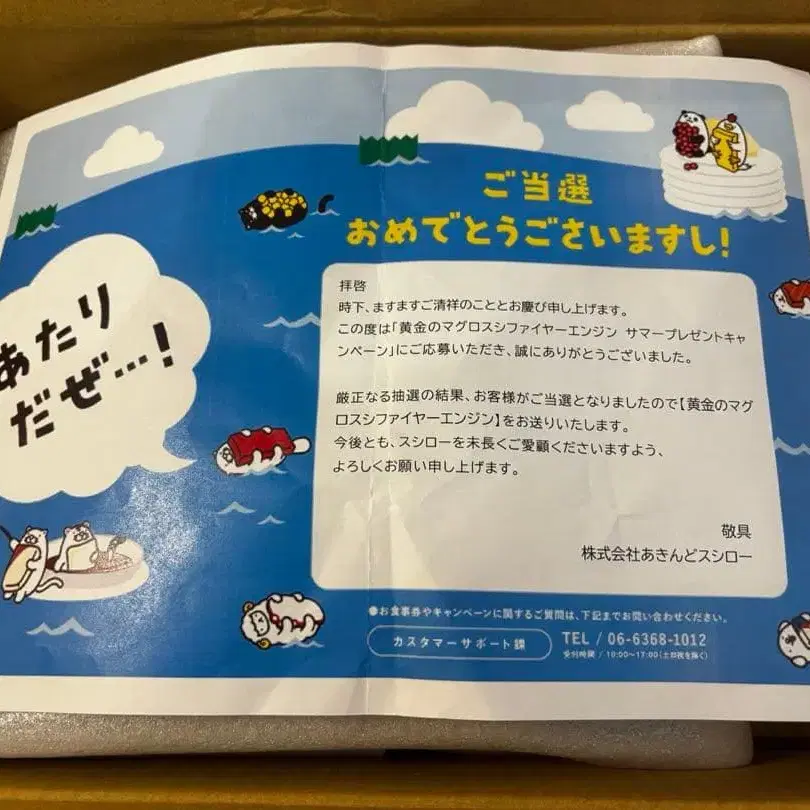 ご当選
おめでとうございますし!
あたり
だぜ…!
拝啓
時下、ますますご清祥のこととお慶び申し上げます。
この度は「黄金のマグロスシファイヤーエンジン サマープレゼントキャ
ンペーン」にご応募いただき、誠にありがとうございました。
厳正なる抽選の結果、お客様がご当選となりましたので【黄金のマグ
ロスシファイヤーエンジン】をお送りいたします。
今後とも、スシローを末長くご愛顧くださいますよう、
よろしくお願い申し上げます。
敬具
株式会社あきんどスシロー
●お食事券やキャンペーンに関するご質問は、下記までお問い合わせください。
カスタマーサポート課
TEL / 06-6368-1012
受付時間 / 10:00~17:00(土日祝を除く)